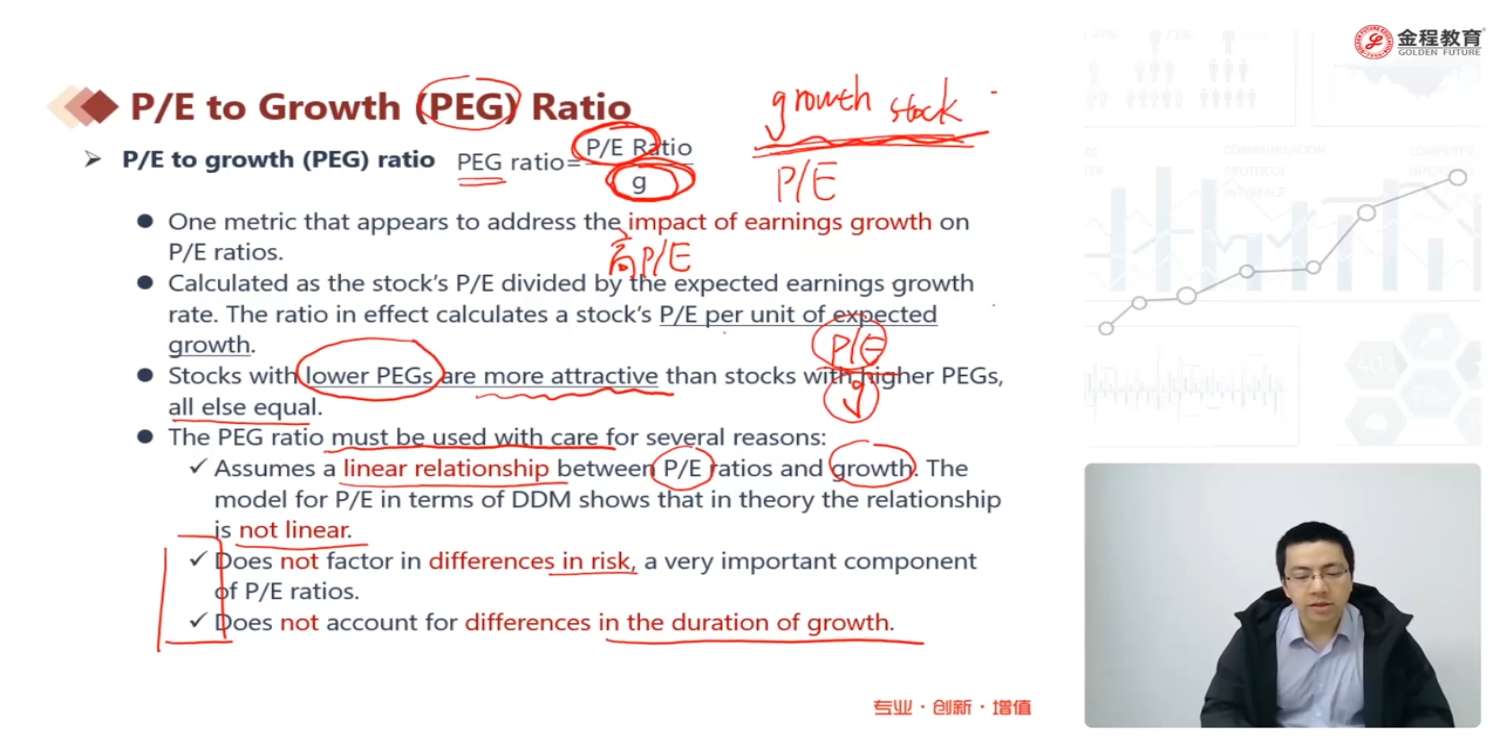 金程教育
GOLDEN FUTURE
P/E to Growth (PEG) Ratio
growth stock
P/E to growth (PEG) ratio PEG ratio= P/E Ratio
g
P/E
One metric that appears to address the impact of earnings growth on
P/E ratios.
高P/E
Calculated as the stock's P/E divided by the expected earnings growth
rate. The ratio in effect calculates a stock's P/E per unit of expected
growth.
P/E
g
Stocks with lower PEGs are more attractive than stocks with higher PEGs,
all else equal.
The PEG ratio must be used with care for several reasons:
Assumes a linear relationship between P/E ratios and growth. The
model for P/E in terms of DDM shows that in theory the relationship
is not linear.
Does not factor in differences in risk, a very important component
of P/E ratios.
Does not account for differences in the duration of growth.
专业·创新·增值